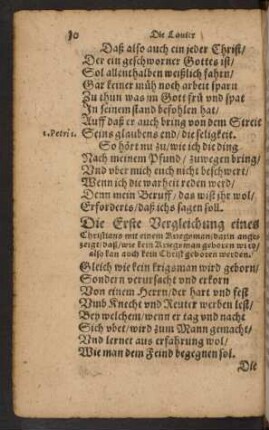 10 Die Lauter
Daß also auch ein jeder Christ/
Der ein geschworner Gottes ist/
Sol allenthalben weißlich fahrn/
Gar keiner müh noch arbeit sparn
Zu thun was im Gott frü und spat
In seinem stand befohlen hat/
Auff daß er auch bring von dem Streit
1. Petri 1. Seins glaubens end/die seligkeit.
So hört nu zu/wie ich die ding
Nach meinem Pfund/zuwegen bring/
Vnd vber mich euch nicht beschwert/
Wenn ich die warheit reden werd/
Denn mein Beruff/das wist jhr wol/
Erforderts/daß ichs sagen soll.
Die Erste Vergleichung eines
Christens mit einem Kriegsman/darin ange-
zeigt/daß/wie kein Kriegsman geboren wird/
also kan auch kein Christ geboren werden.
Gleich wie kein krigsman wird geborn/
Sondern versucht und erkorn
Von einem Herrn/der hart vnd fest
Vmb Knecht vnd Reuter werben lest/
Bey welchem/wenn er tag vnd nacht
Sich vbet/wird zum Mann gemacht/
Vnd lernet aus erfahrung wol/
Wie man dem Feind begegnen sol.
Die